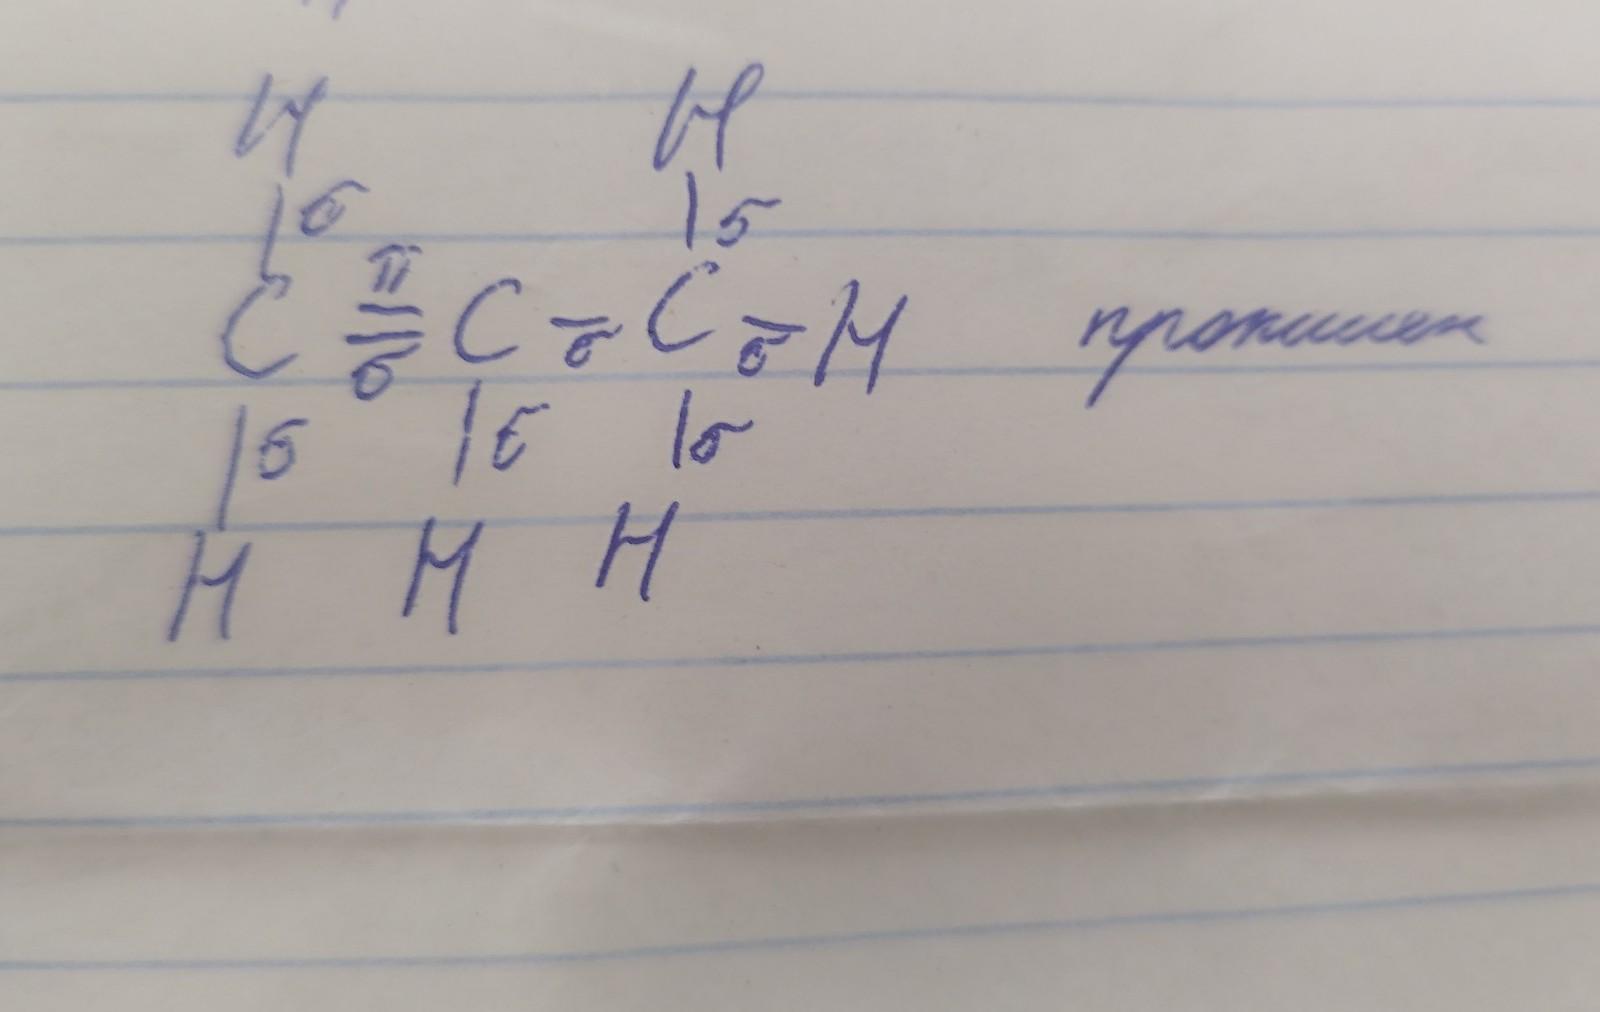 H H
σ σ
C π σ C σ C σ H пропилен
σ σ σ
H H H